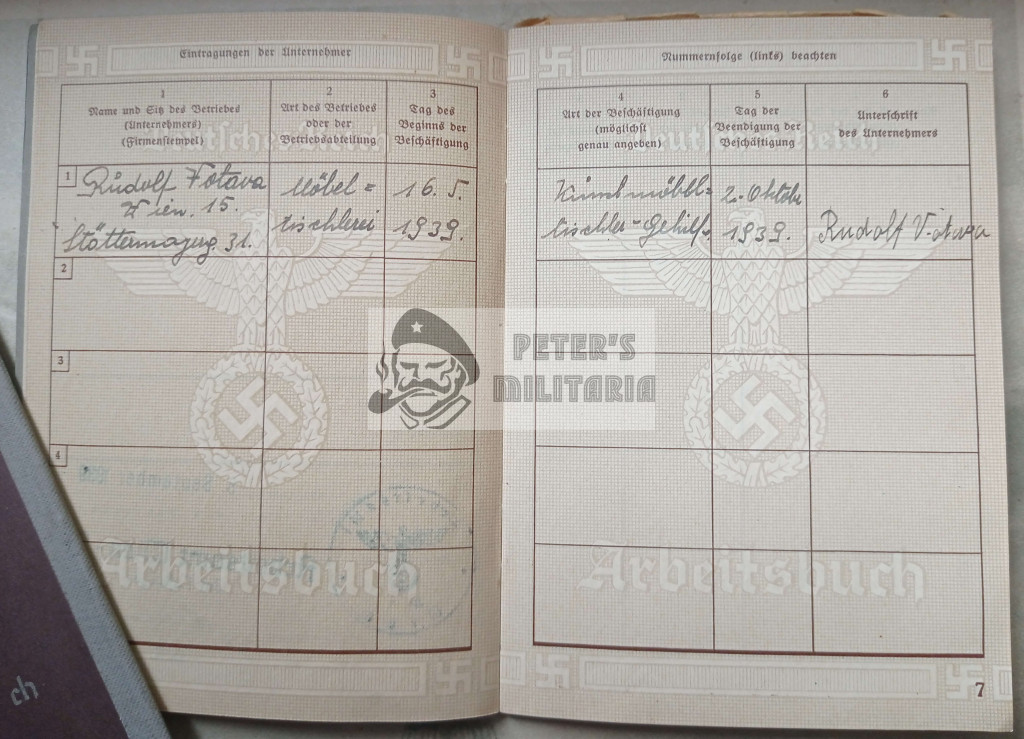 Eintragungen der Unternehmer
1
Name und Sitz des Betriebes
(Unternehmers)
(Firmenstempel)
2
Art des Betriebes
oder der
Betriebsabteilung
3
Tag des
Beginns der
Beschäftigung
1
Rudolf Votava
Wien. 15.
31.
Möbel =
tischlerei
16. 5.
1939.
2
3
4
September
Deutsches Reich
Arbeitsbuch
Nummernfolge (links) beachten
4
Art der Beschäftigung
(möglichst
genau angeben)
5
Tag der
Beendigung der
Beschäftigung
6
Unterschrift
des Unternehmers
tischler-Gehilfe
2. Oktober
1939.
Rudolf Votava
Deutsches Reich
Arbeitsbuch
7
PETER'S
MILITARIA
ch